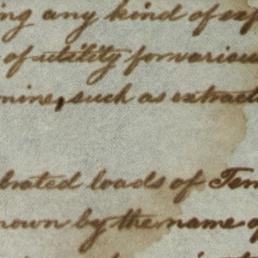 ing any kind of
of utility for various
mine, such as extract
brated loads of Ten
nown by the name of